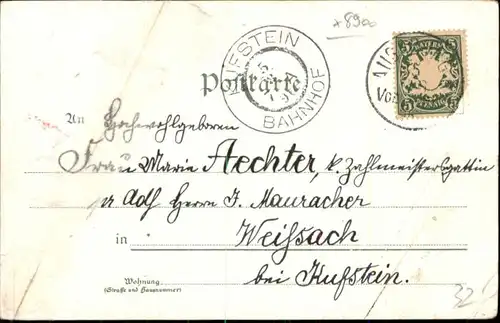 +8900
KUFSTEIN
BAHNHOF
Postkarte
AUG
BAYERN
5 5
PFENNIG
An Hochwohlgeboren
Frau Marie Aechter, k. Zahlmeistersgattin
pr Adr Herrn J. Mauracher
in Weißsach
bei Kufstein.
Wohnung
(Straße und Hausnummer)
32